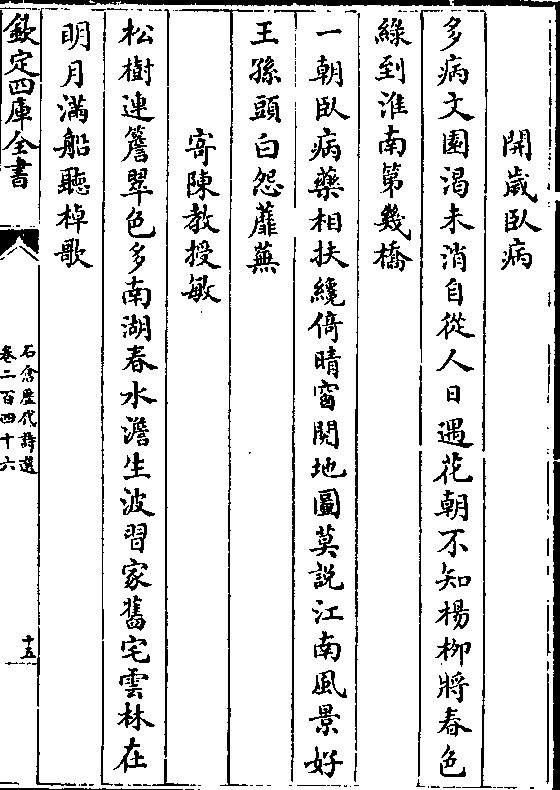 開嵗卧病
多病文園渴未消自從人日遇花朝不知楊柳將春色
綠到淮南第幾橋
一朝卧病藥相扶纔倚晴窗閱地圖莫說江南風景好
王孫頭白怨蘼蕪
寄陳教授敏
松樹連簷翠色多南湖春水澹生波習家舊宅雲林在
明月滿船聽棹歌
欽定四庫全書
石倉歷代詩選
卷二百四十六
十五